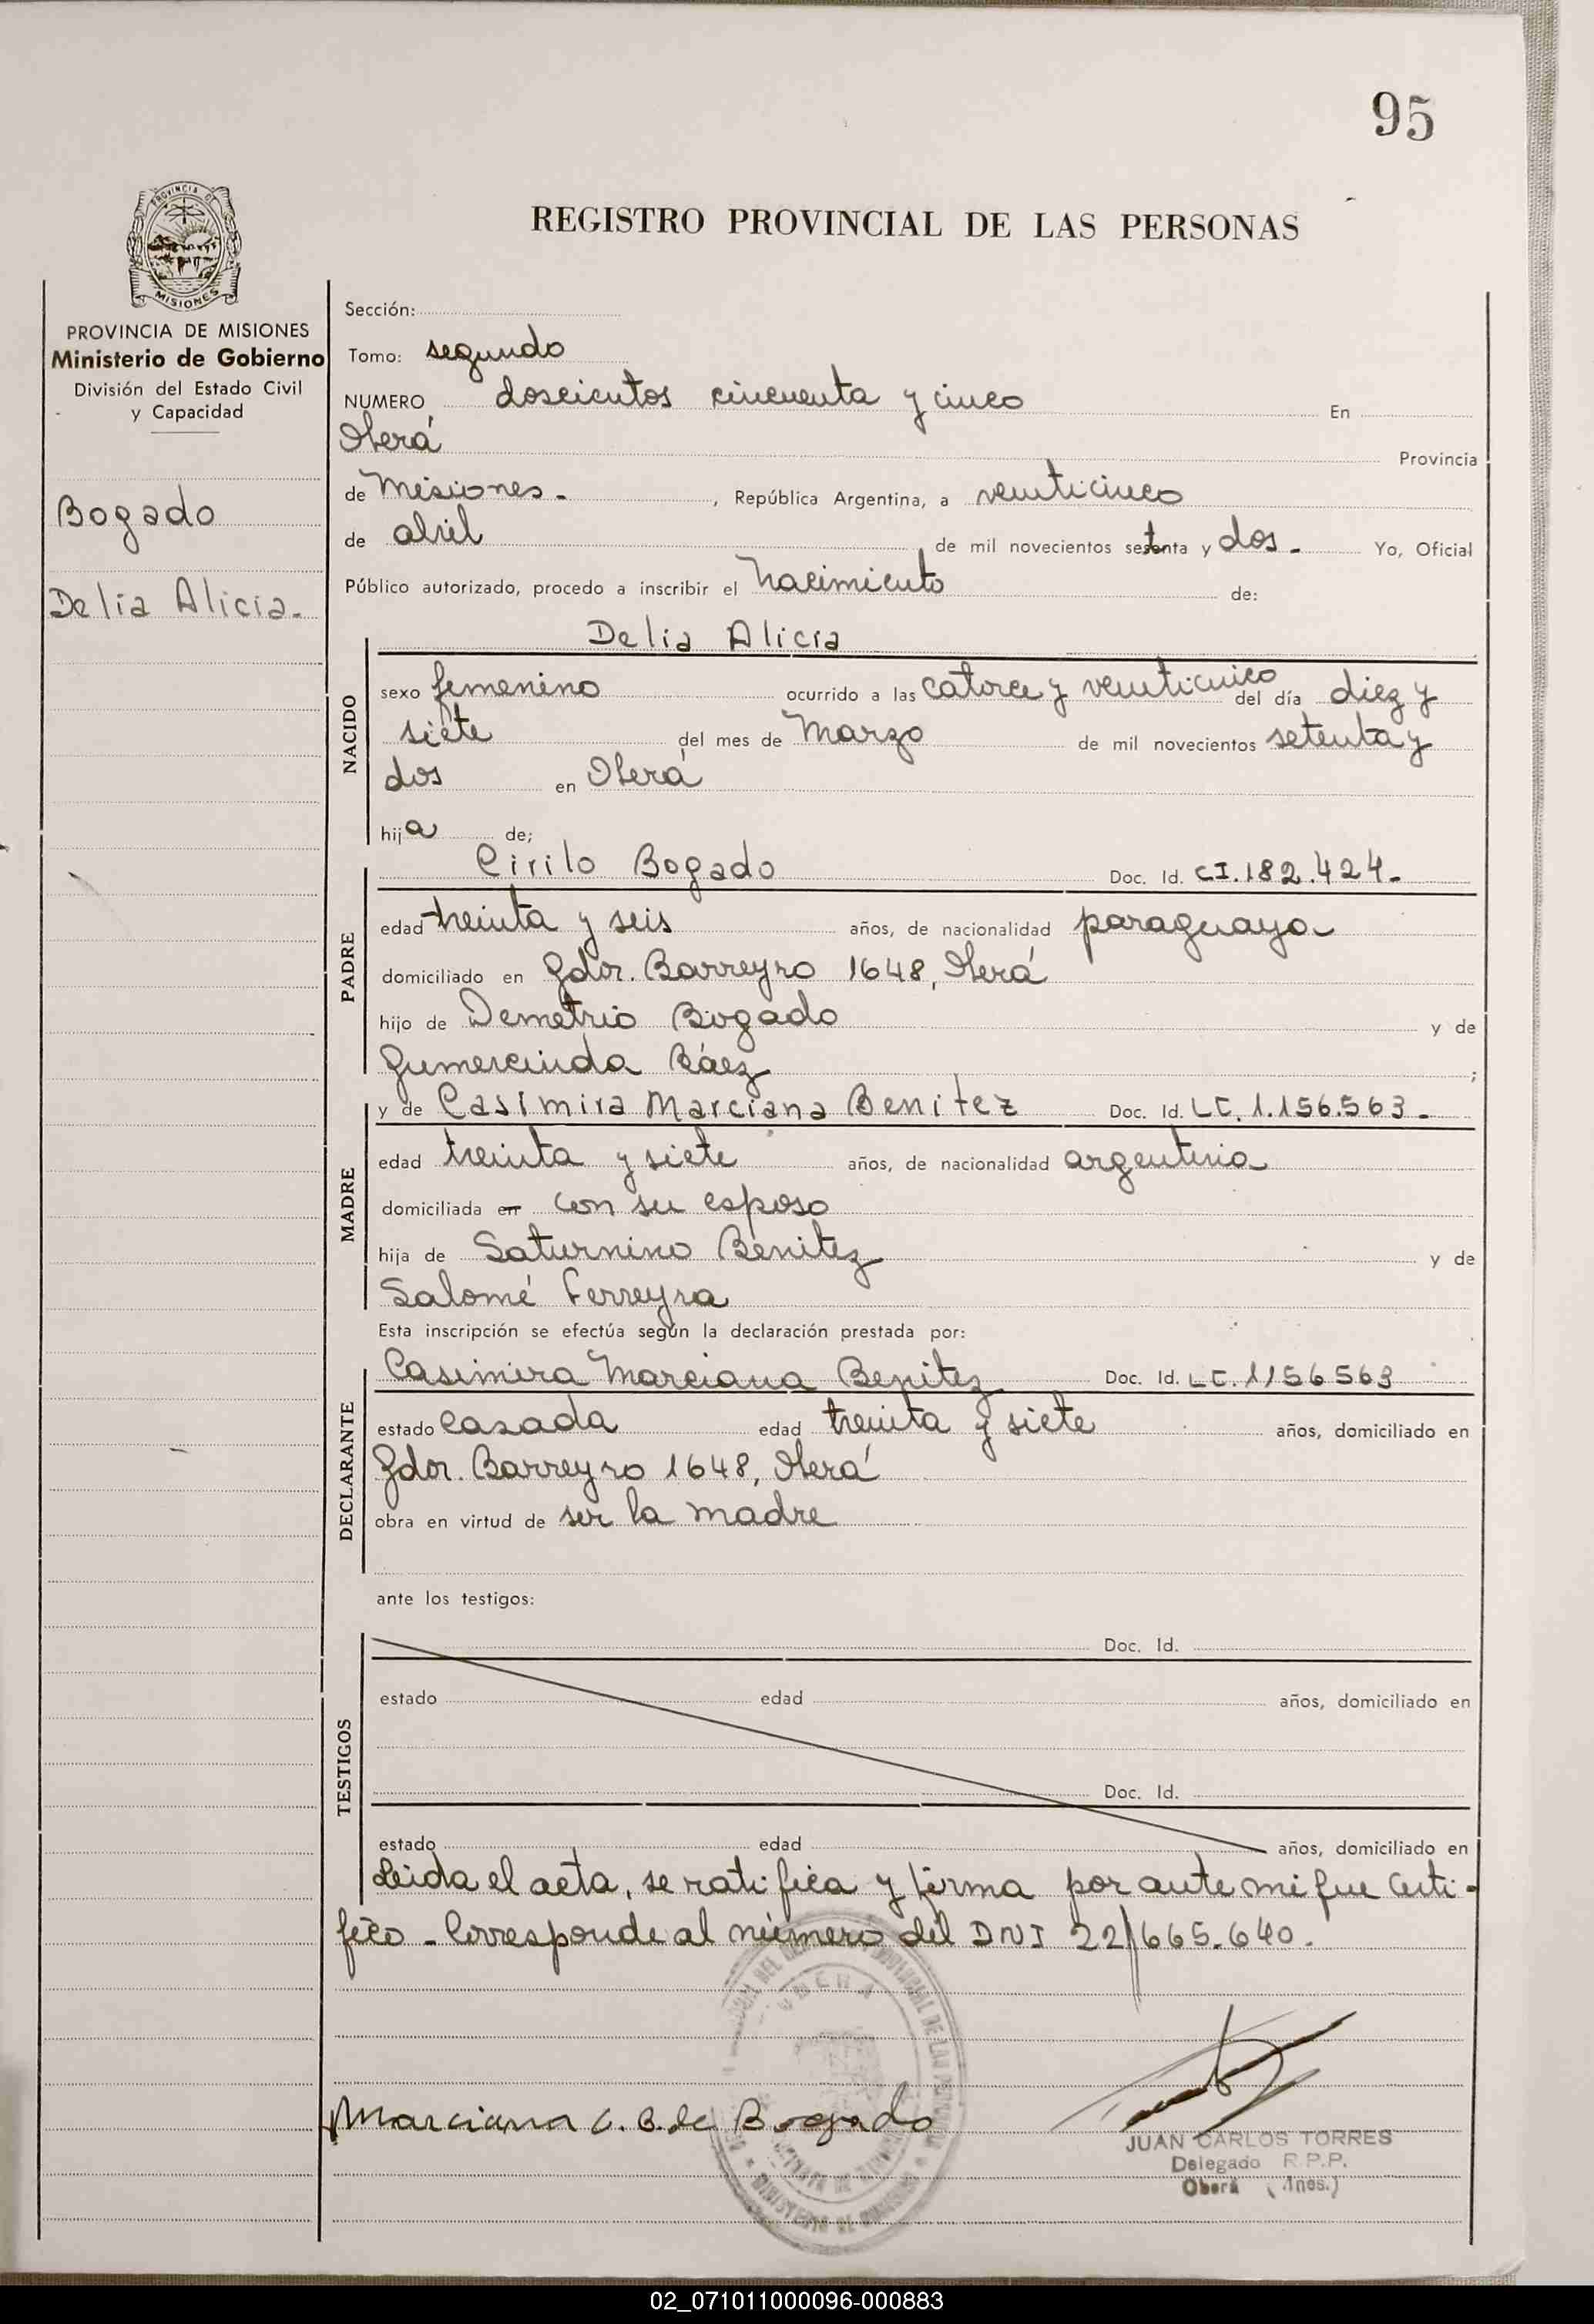 95
PROVINCIA DE
MISIONES
REGISTRO PROVINCIAL DE LAS PERSONAS
PROVINCIA DE MISIONES
Ministerio de Gobierno
División del Estado Civil
y Capacidad
Bogado
Delia Alicia.
Sección:
Tomo: segundo
NUMERO doscientos cincuenta y cinco En
Oberá Provincia
de Misiones. , República Argentina, a veinticinco
de abril de mil novecientos setenta y dos. Yo, Oficial
Público autorizado, procedo a inscribir el nacimiento de:
Delia Alicia
NACIDO
sexo femenino ocurrido a las catorce y veinticinco del día diez y
siete del mes de Marzo de mil novecientos setenta y
dos en Oberá
hija de;
Cirilo Bogado Doc. Id. CI.182.424.
PADRE
edad treinta y seis años, de nacionalidad paraguaya
domiciliado en Gdor. Barreyro 1648, Oberá
hijo de Demetrio Bogado y de
Gumercinda Báez ;
y de Casimira Marciana Benitez Doc. Id. LC. 1.156.563.
MADRE
edad treinta y siete años, de nacionalidad argentina
domiciliada en con su esposo
hija de Saturnino Benitez y de
Salomé Ferreyra
Esta inscripción se efectúa según la declaración prestada por:
Casimira Marciana Benitez Doc. Id. LC. 1156563
DECLARANTE
estado casada edad treinta y siete años, domiciliado en
Gdor. Barreyro 1648, Oberá
obra en virtud de ser la madre
ante los testigos:
Doc. Id.
TESTIGOS
estado edad años, domiciliado en
Doc. Id.
estado edad años, domiciliado en
Leida el acta, se ratifica y firma por ante mi que certi-
fico. Corresponde al número del DNI 22/665.640.
OBERA
Marciana C. B. de Bogado
JUAN CARLOS TORRES
Delegado R.P.P.
Oberá
02_071011000096-000883